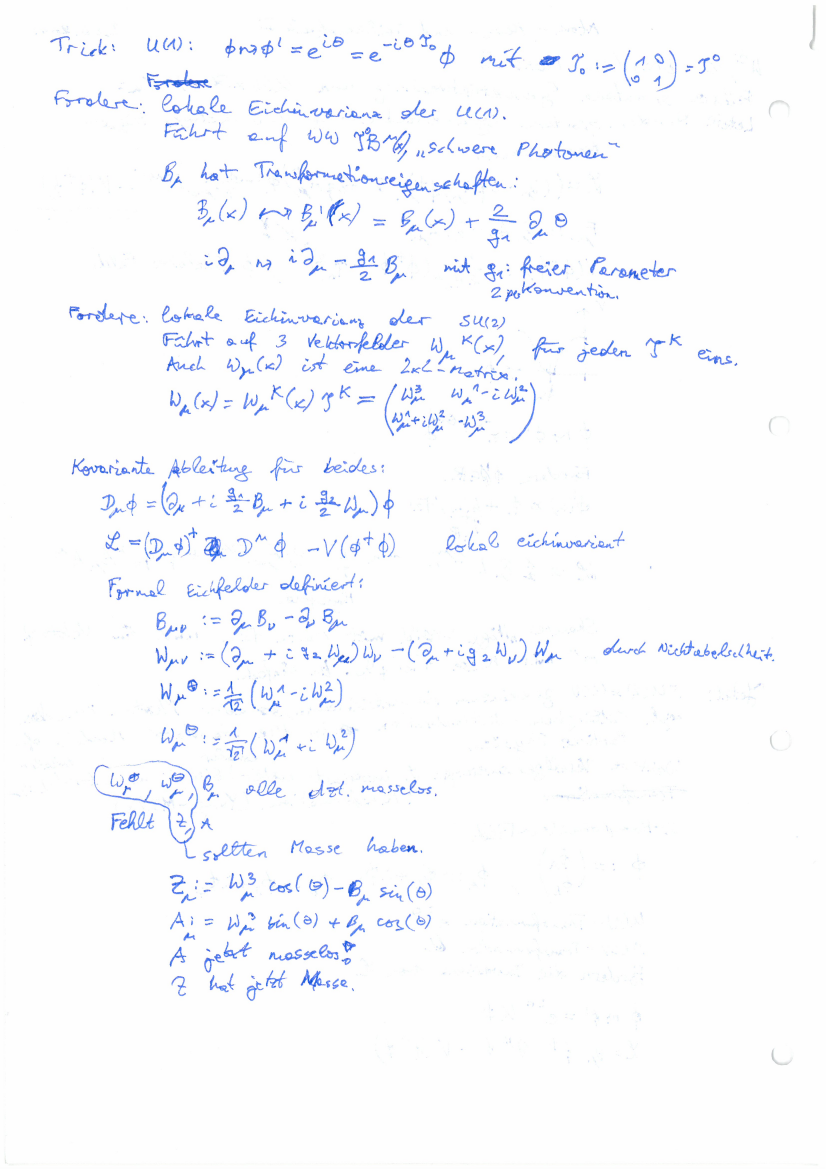 Trick: U(1): ϕ ⇝ ϕ' = e^{iθ} = e^{-iθ τ₀} ϕ mit τ₀ := (1 0; 0 1) = τ⁰
Fordere
Fordere: lokale Eichinvarianz der U(1).
Führt auf WW τ⁰B^μ(x), „schwere Photonen"
B_μ hat Transformationseigenschaften:
B_μ(x) ⇝ B_μ'(x) = B_μ(x) + 2/g₁ ∂_μ θ
i∂_μ ⇝ i∂_μ - g₁/2 B_μ mit g₁: freier Parameter
2 Konvention.
Fordere: lokale Eichinvarianz der SU(2)
Führt auf 3 Vektorfelder W_μ^K(x), für jeden τ^K eins.
Auch W_μ(x) ist eine 2x2-Matrix.
W_μ(x) = W_μ^K(x) τ^K = (W_μ^3 W_μ^1 - iW_μ^2; W_μ^1 + iW_μ^2 -W_μ^3)
Kovariante Ableitung für beides:
D_μϕ = (∂_μ + i g₁/2 B_μ + i g₂/2 W_μ) ϕ
ℒ = (D_μϕ)^† D^μ ϕ - V(ϕ^†ϕ) lokal eichinvariant
Formal Eichfelder definiert:
B_μν := ∂_μ B_ν - ∂_ν B_μ
W_μν := (∂_μ + i g₂ W_μ) W_ν - (∂_μ + i g₂ W_ν) W_μ durch Nichtabelschheit.
W_μ^⊕ := 1/√2 (W_μ^1 - iW_μ^2)
W_μ^⊖ := 1/√2 (W_μ^1 + i W_μ^2)
W_μ^⊕, W_μ^⊖, B_μ alle dzt. masselos.
Fehlt Z, A
sollten Masse haben.
Z_μ := W_μ^3 cos(θ) - B_μ sin(θ)
A_μ := W_μ^3 sin(θ) + B_μ cos(θ)
A jetzt masselos!
Z hat jetzt Masse.